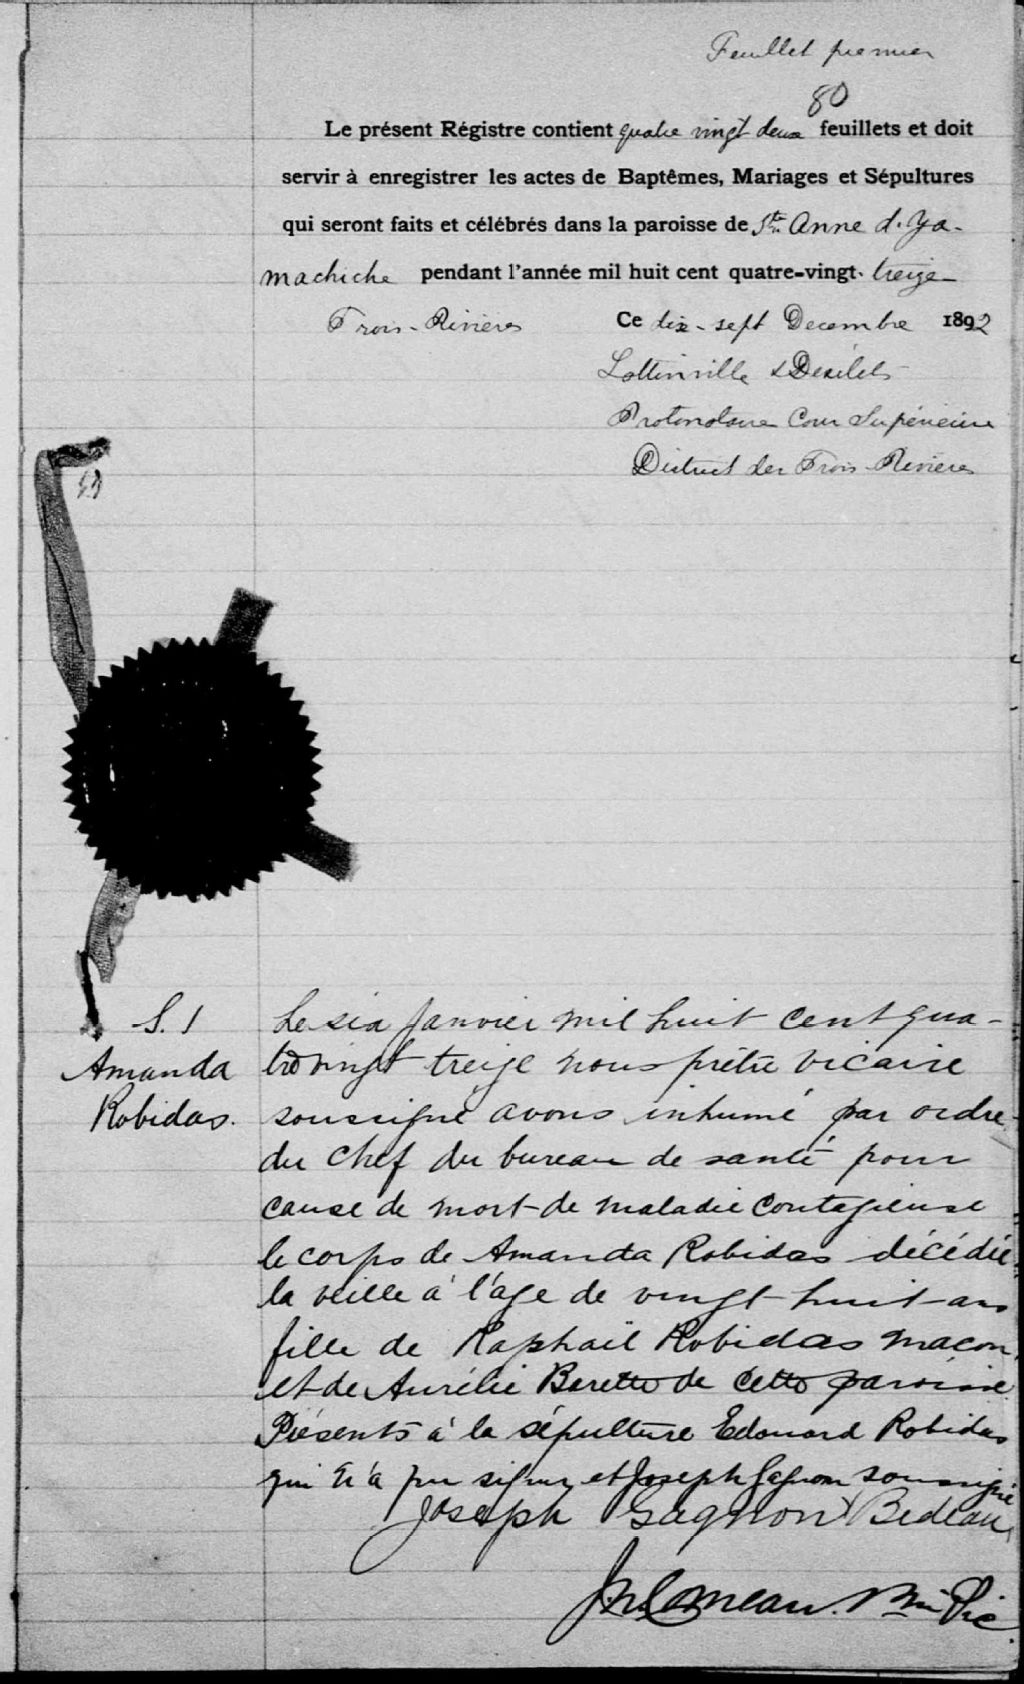 Feuillet premier
80
Le présent Régistre contient quatre vingt deux feuillets et doit
servir à enregistrer les actes de Baptêmes, Mariages et Sépultures
qui seront faits et célébrés dans la paroisse de Ste Anne d. Ya-
machiche pendant l'année mil huit cent quatre-vingt- treize
Trois-Rivières Ce dix-sept Decembre 1892
Lottinville & Désilets
Protonotaire Cour Supérieure
District des Trois-Rivières
S. 1
Amanda
Robidas.
Le six Janvier mil huit cent qua-
tre vingt treize nous prêtre vicaire
soussigné avons inhumé par ordre
du chef du bureau de santé pour
cause de mort de maladie contagieuse
le corps de Amanda Robidas décédée
la veille à l'âge de vingt-huit ans
fille de Raphaël Robidas maçon
et de Aurélie Berette de cette paroisse.
Présents à la sépulture Edouard Robidas
qui n'a pu signer et Joseph Gagnon soussigné
Joseph Gagnon Bedeau
Comeau. Ptre Vic.